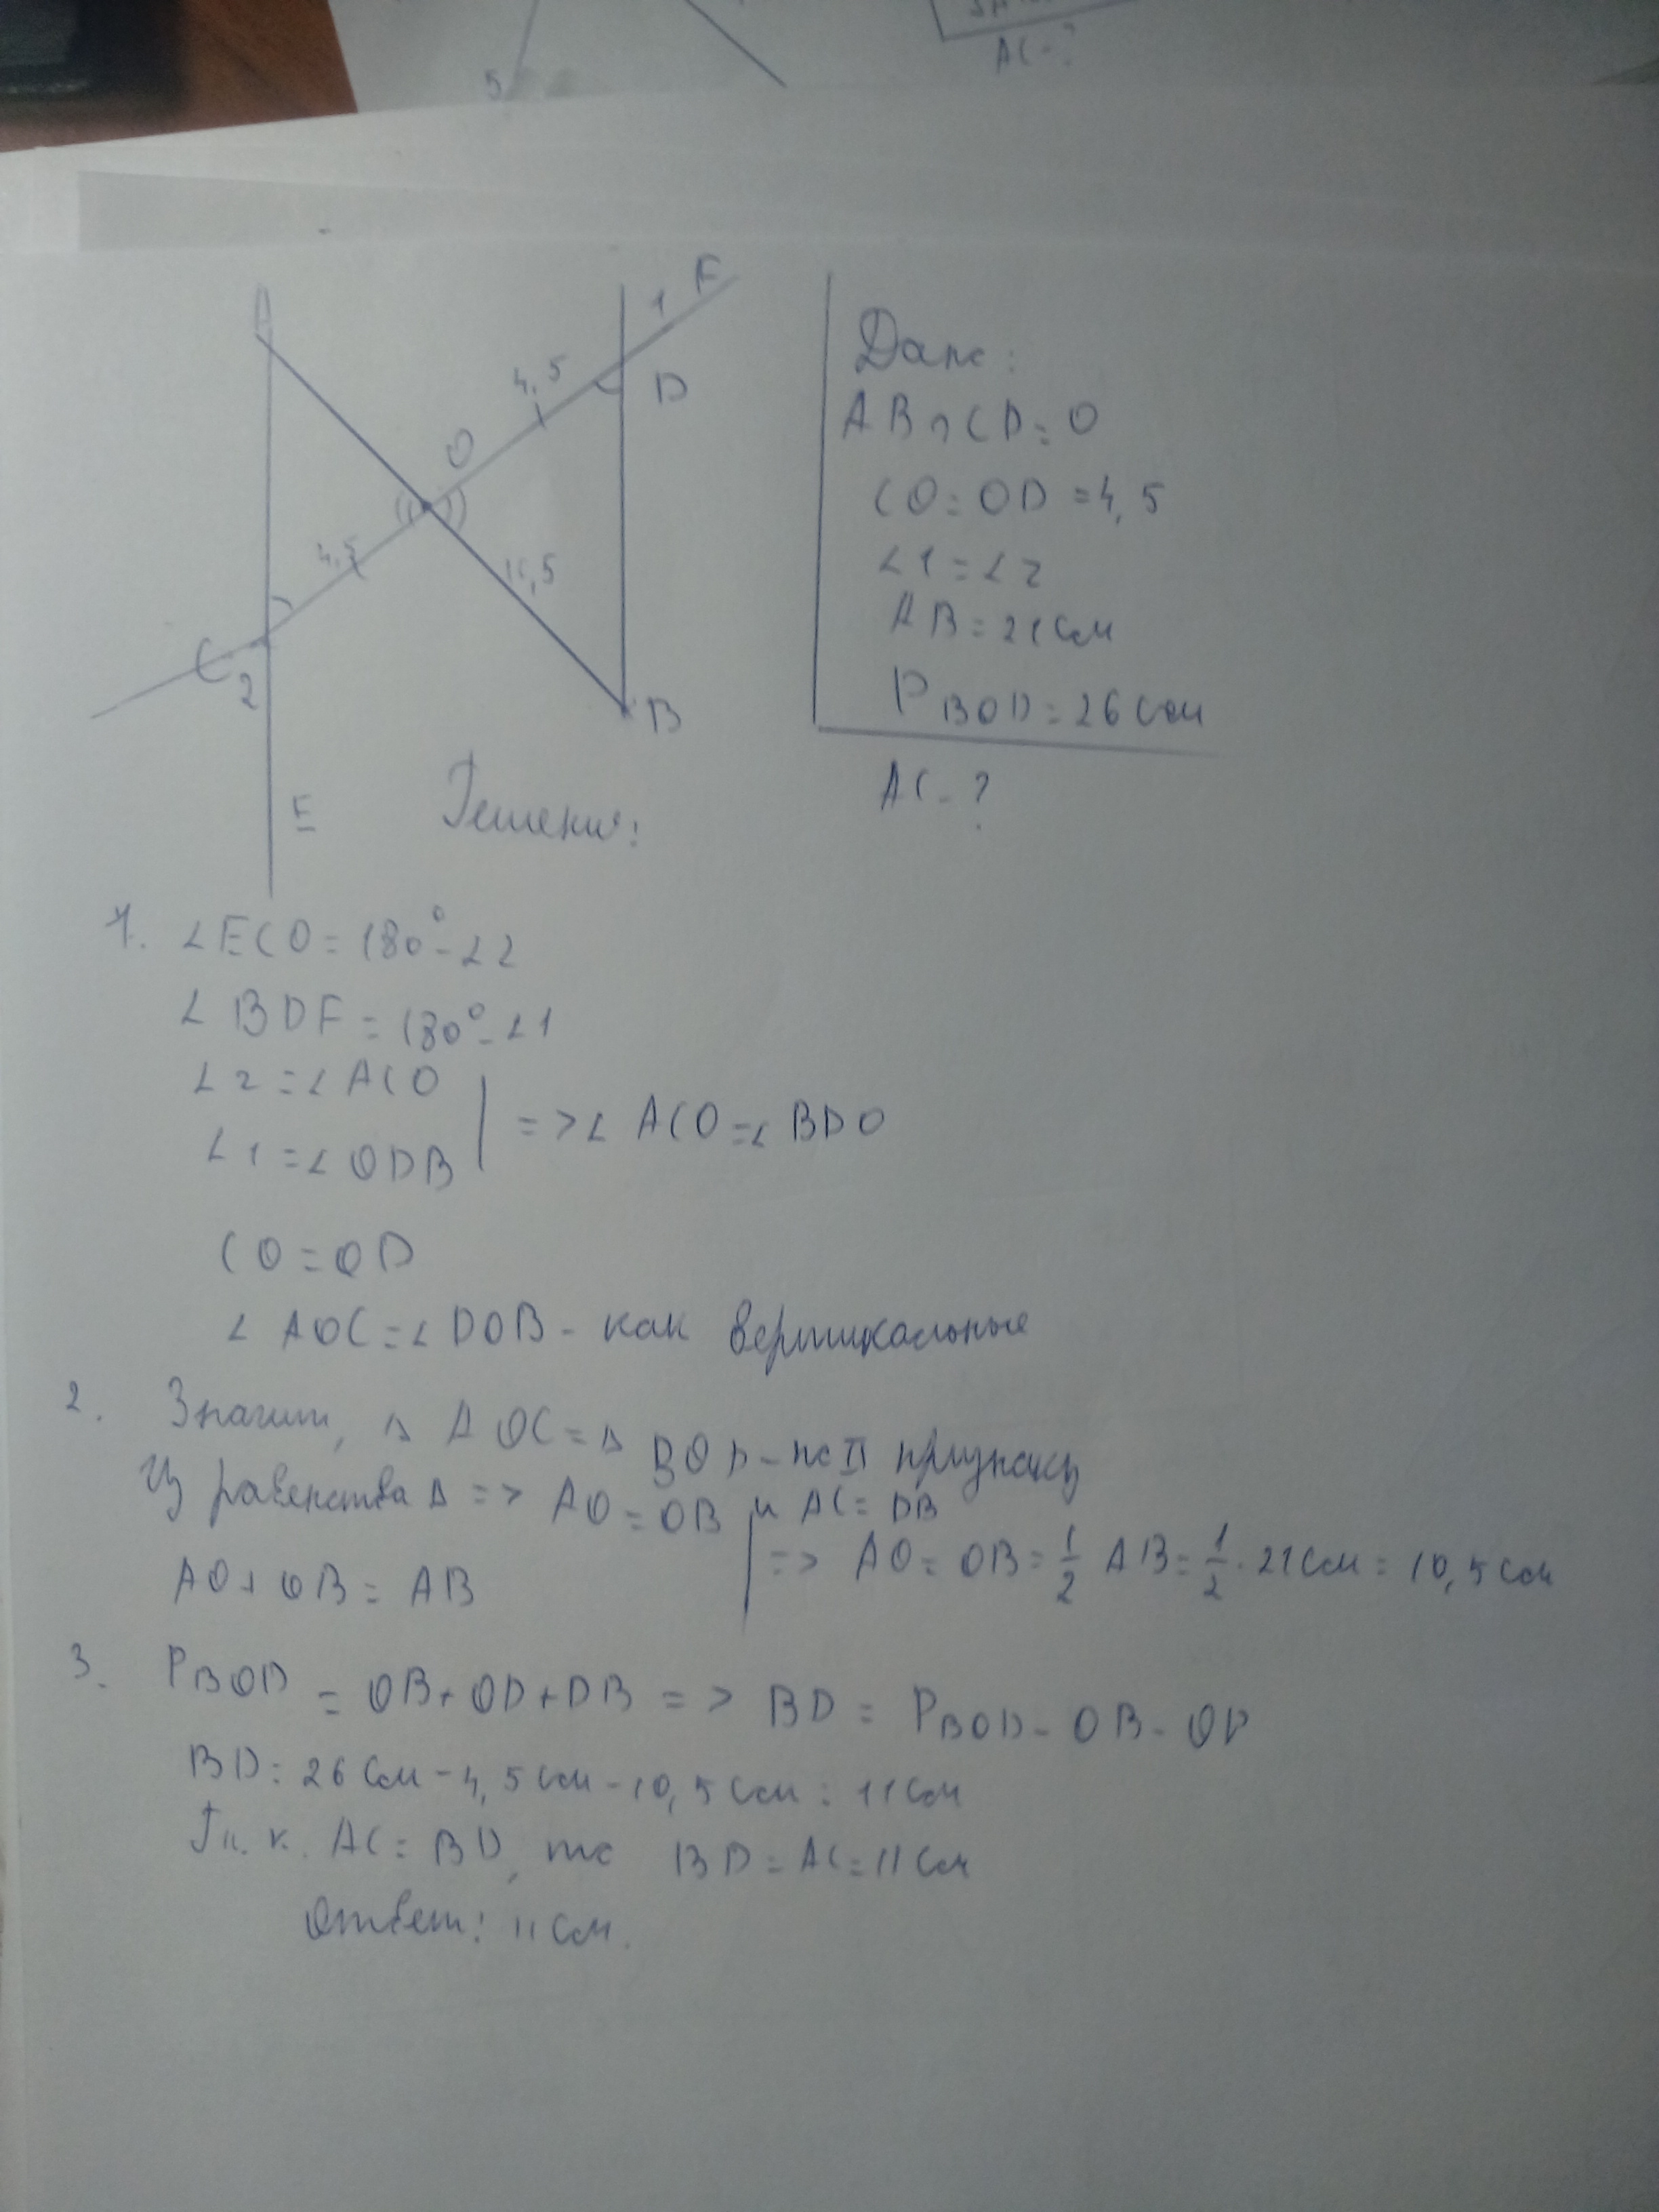 5
AC - ?
A
1 F
4,5
D
O
4,5
C
2
B
E
Дано:
AB ∩ CD = O
CO = OD = 4,5
∠1 = ∠2
AB = 21 см
P BOD = 26 см
AC - ?
Решение:
1. ∠ECO = 180° - ∠2
∠BDF = 180° - ∠1
∠2 = ∠ACO
∠1 = ∠ODB
=> ∠ACO = ∠BDO
CO = OD
∠AOC = ∠DOB - как вертикальные
2. Значит, Δ AOC = Δ BOD - по II признаку
Из равенства Δ => AO = OB и AC = DB
AO + OB = AB
=> AO = OB = 1/2 AB = 1/2 · 21 см = 10,5 см
3. P BOD = OB + OD + DB => BD = P BOD - OB - OD
BD = 26 см - 4,5 см - 10,5 см = 11 см
Т. к. AC = BD, то BD = AC = 11 см
Ответ: 11 см.